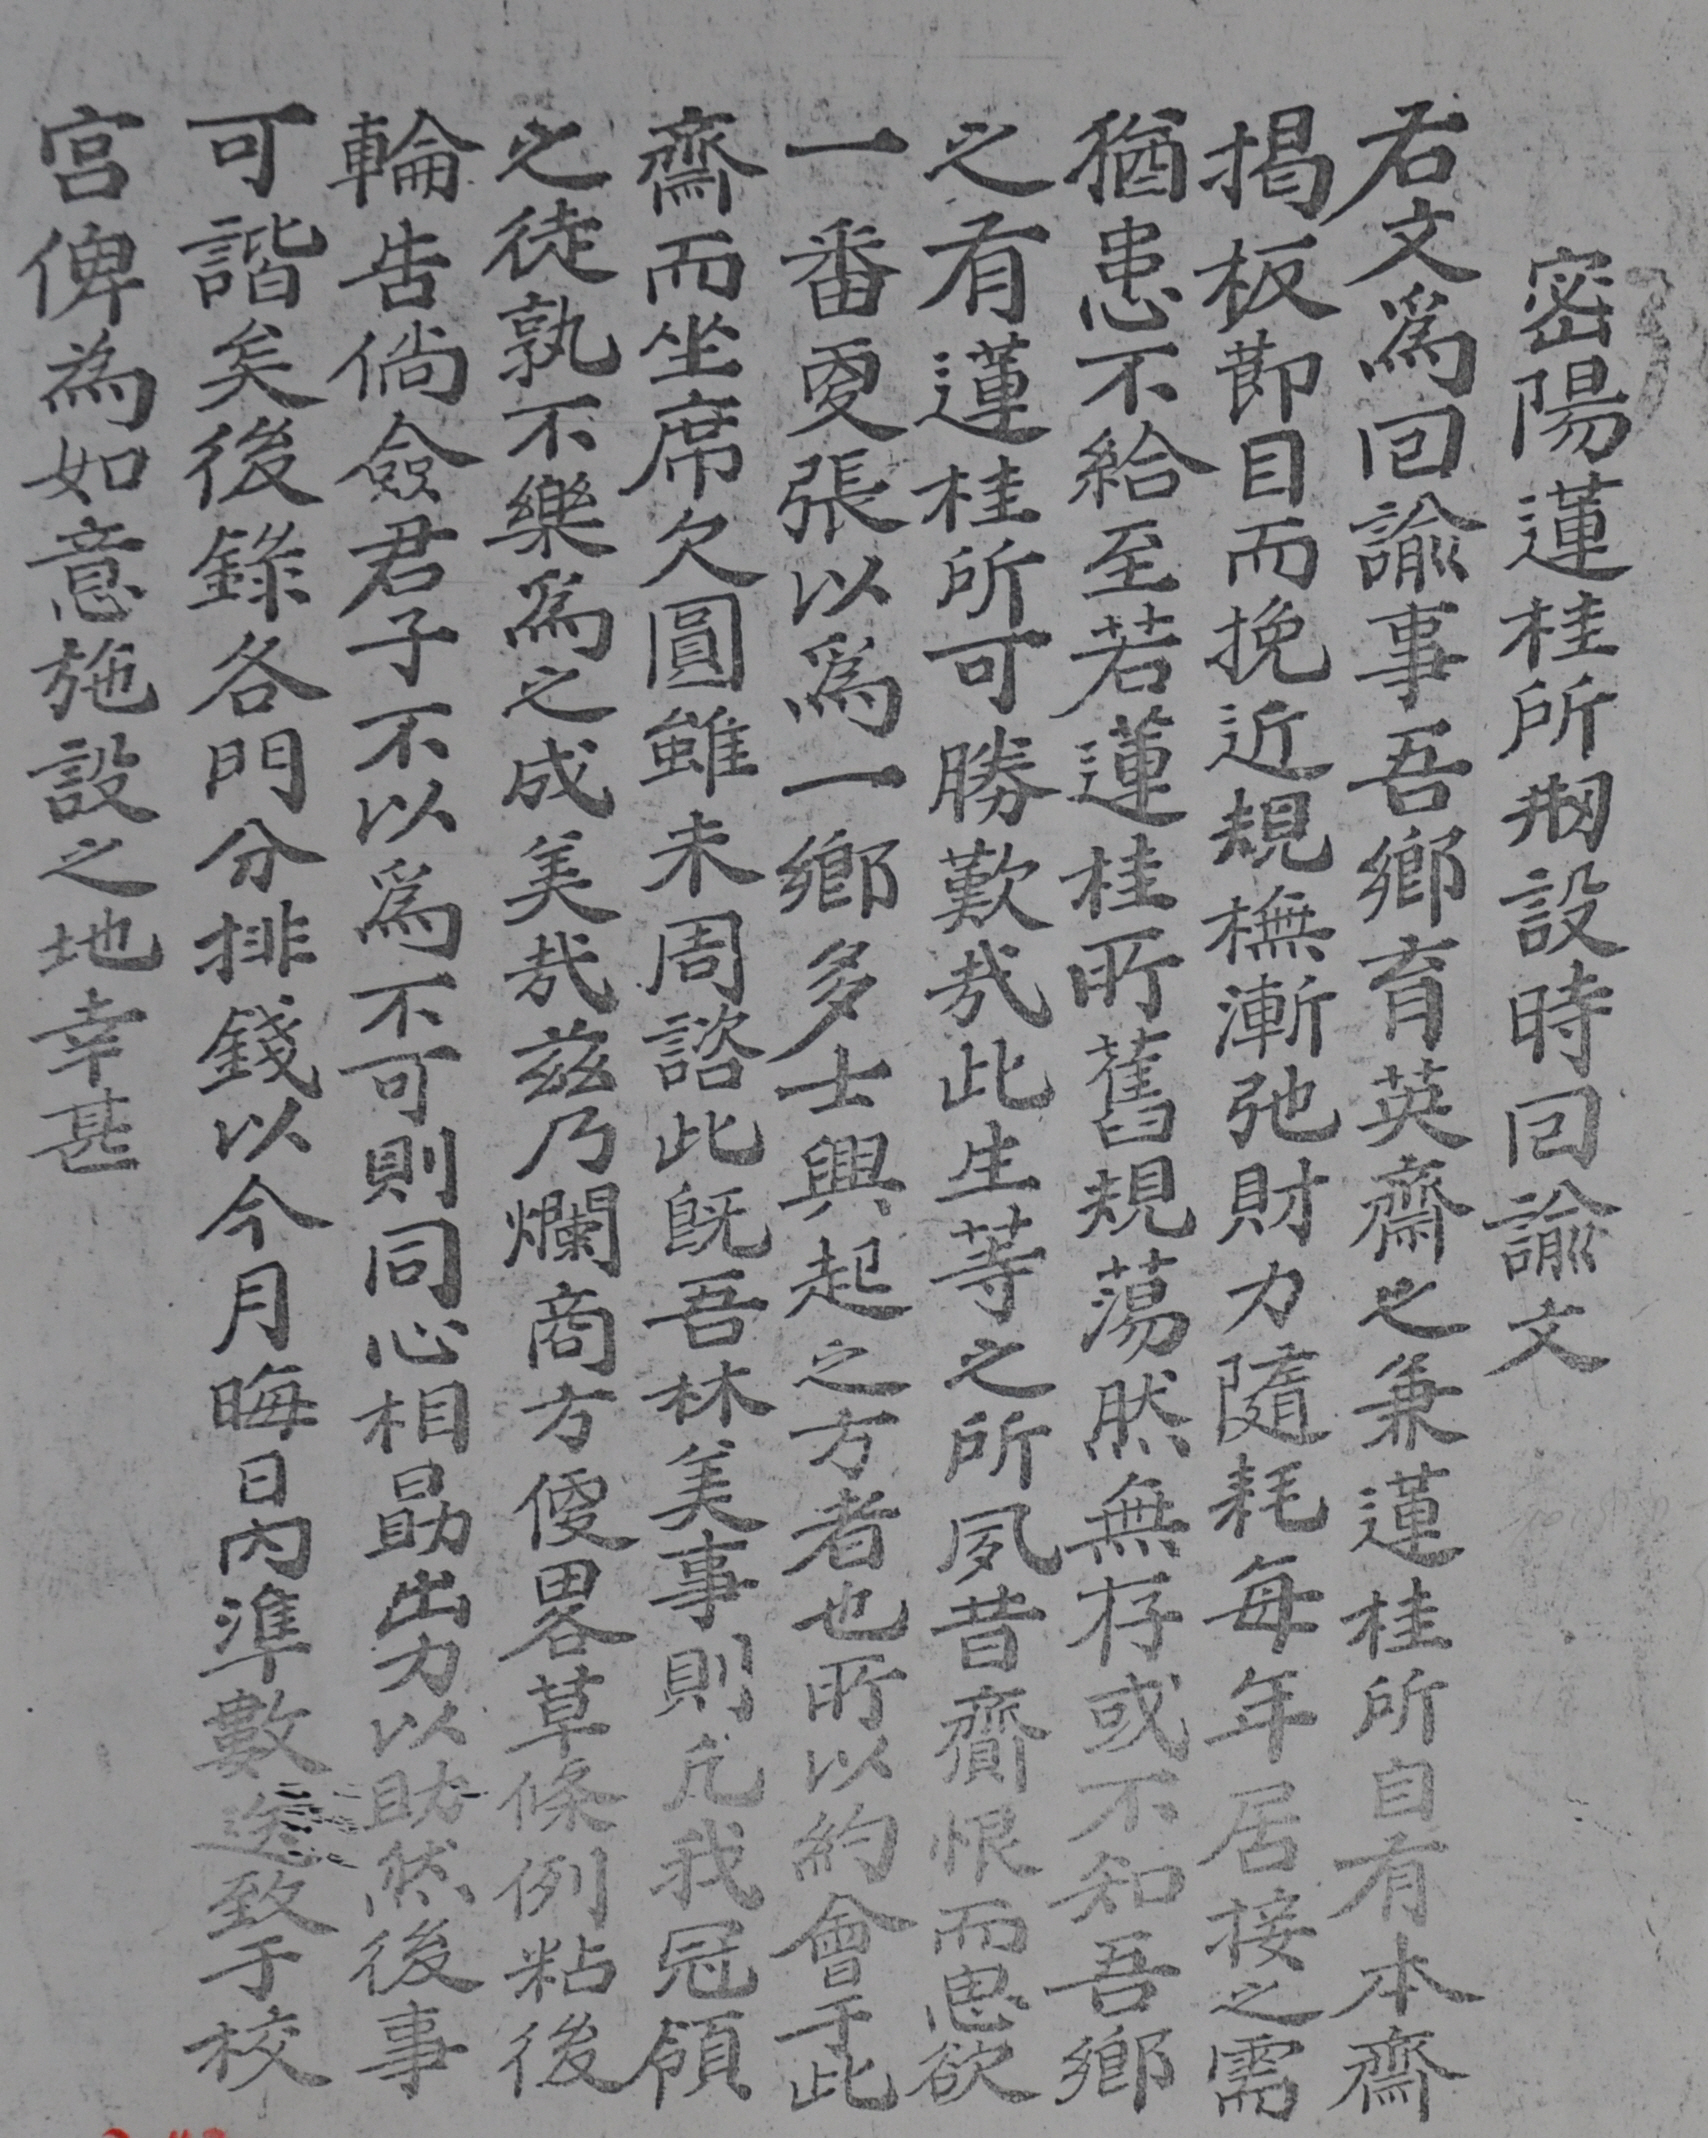 密陽蓮桂所刱設時回諭文
右文爲回諭事吾鄉育英齋之兼蓮桂所自有本齋
揭板節目而挽近規橅漸弛財力隨耗每年居接之需
猶患不給至若蓮桂所舊規蕩然無存或不知吾鄉
之有蓮桂所可勝歎哉此生等之所夙昔齎恨而思欲
一番更張以爲一鄉多士興起之方者也所以約會于此
齋而坐席欠圓雖未周諮此旣吾林美事則凢我冠領
之徒孰不樂爲之成美哉兹乃爛商方便畧草條例粘後
輪告倘僉君子不以爲不可則同心相勗出力以助然後事
可諧矣後錄各門分排錢以今月晦日內準數送致于校
宮俾為如意施設之地幸甚